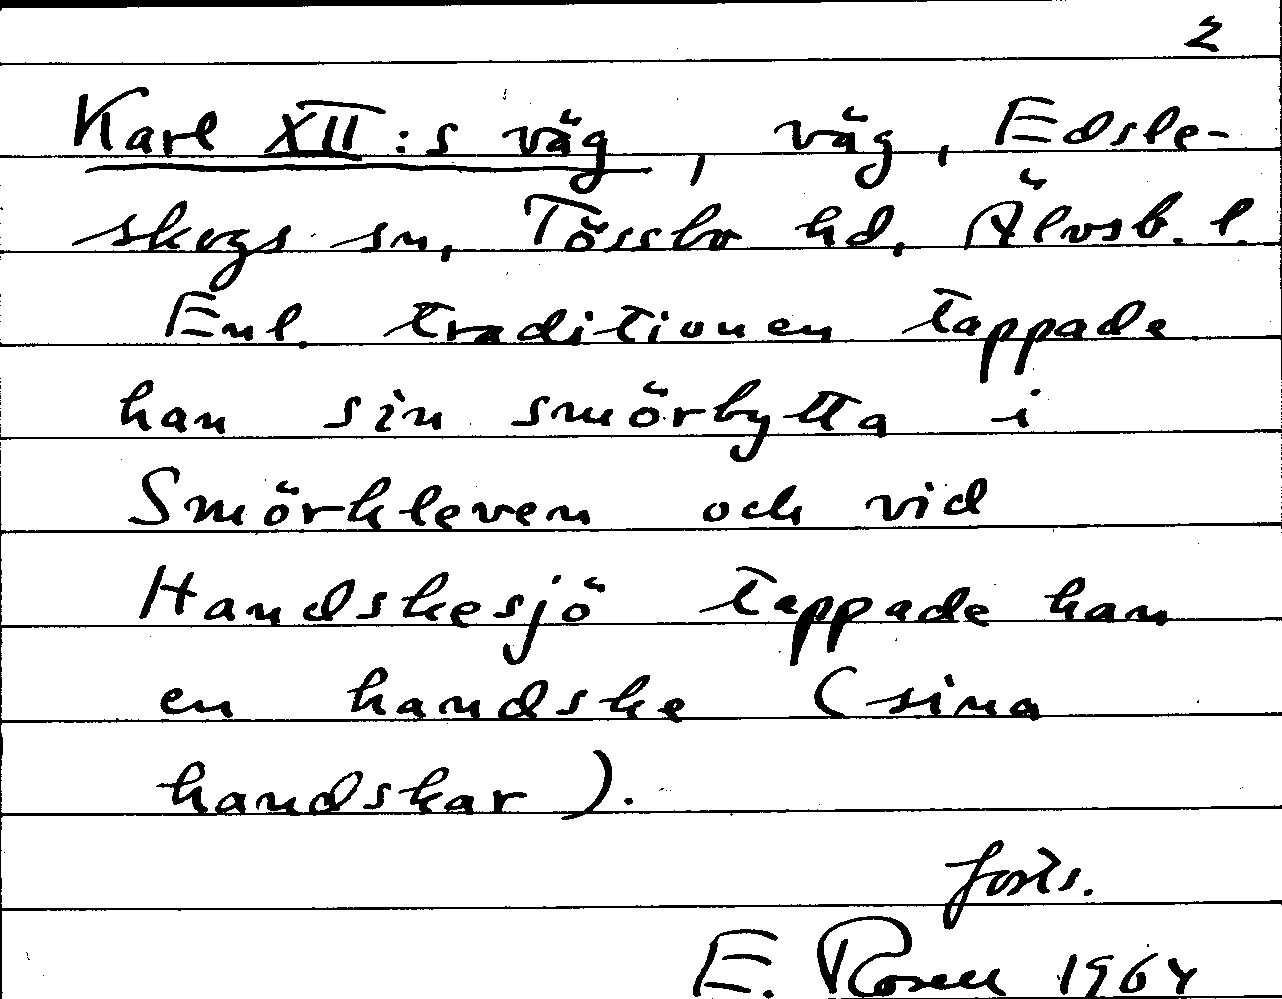 2
Karl XII:s väg, väg, Edsle-
skogs sn, Tössbo hd, Älvsb. l.
Enl. traditionen tappade
han sin smörbytta i
Smörkleven och vid
Handskesjö tappade han
en handske (sina
handskar).
forts.
E. Rosell 1964